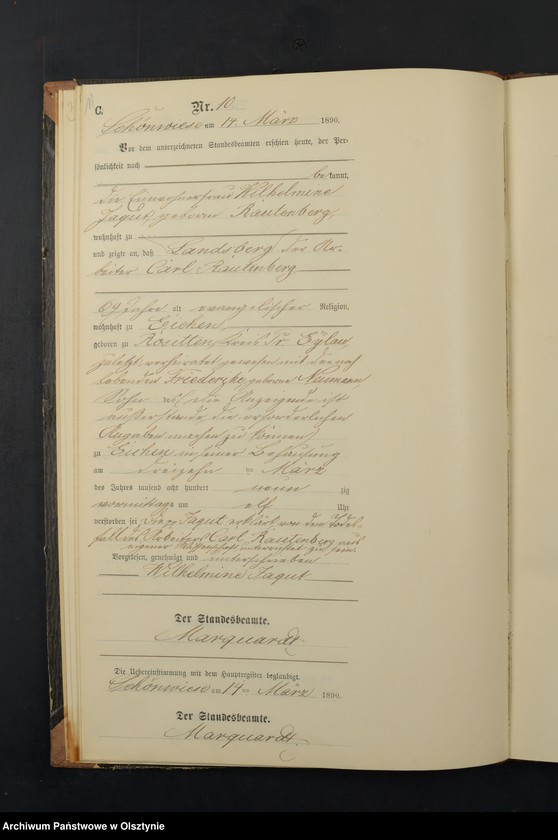 C.
Nr. 10
Schönwiese am 14. März 1890.
Vor dem unterzeichneten Standesbeamten erschien heute, der Per-
sönlichkeit nach
bekannt,
die Einwohnerfrau Wilhelmine
Jagut, geborne Rautenberg,
wohnhaft zu
und zeigte an, daß Landsberg der Ar-
beiter Carl Rautenberg
69 Jahre alt evangelischer Religion,
wohnhaft zu Eichen
geboren zu Kreis Pr. Eylau
zuletzt verheiratet gewesen mit der noch
lebenden geborne Naumann
Sohn die Anzeigende ist
außerstande die erforderlichen
Angaben machen zu können
zu Eichen in seiner Behausung
am dreizehn ten März
des Jahres tausend acht hundert neun zig
vormittags um elf Uhr
verstorben sei. Jagut erklärt von dem Todes-
fall des Arbeiters Carl Rautenberg aus
eigener Wissenschaft unterrichtet zu sein.
Vorgelesen, genehmigt und unterschrieben
Wilhelmine Jagut
Der Standesbeamte.
Marquardt
Die Uebereinstimmung mit dem Hauptregister beglaubigt.
Schönwiese am 14ten März 1890.
Der Standesbeamte.
Marquardt.
Archiwum Państwowe w Olsztynie